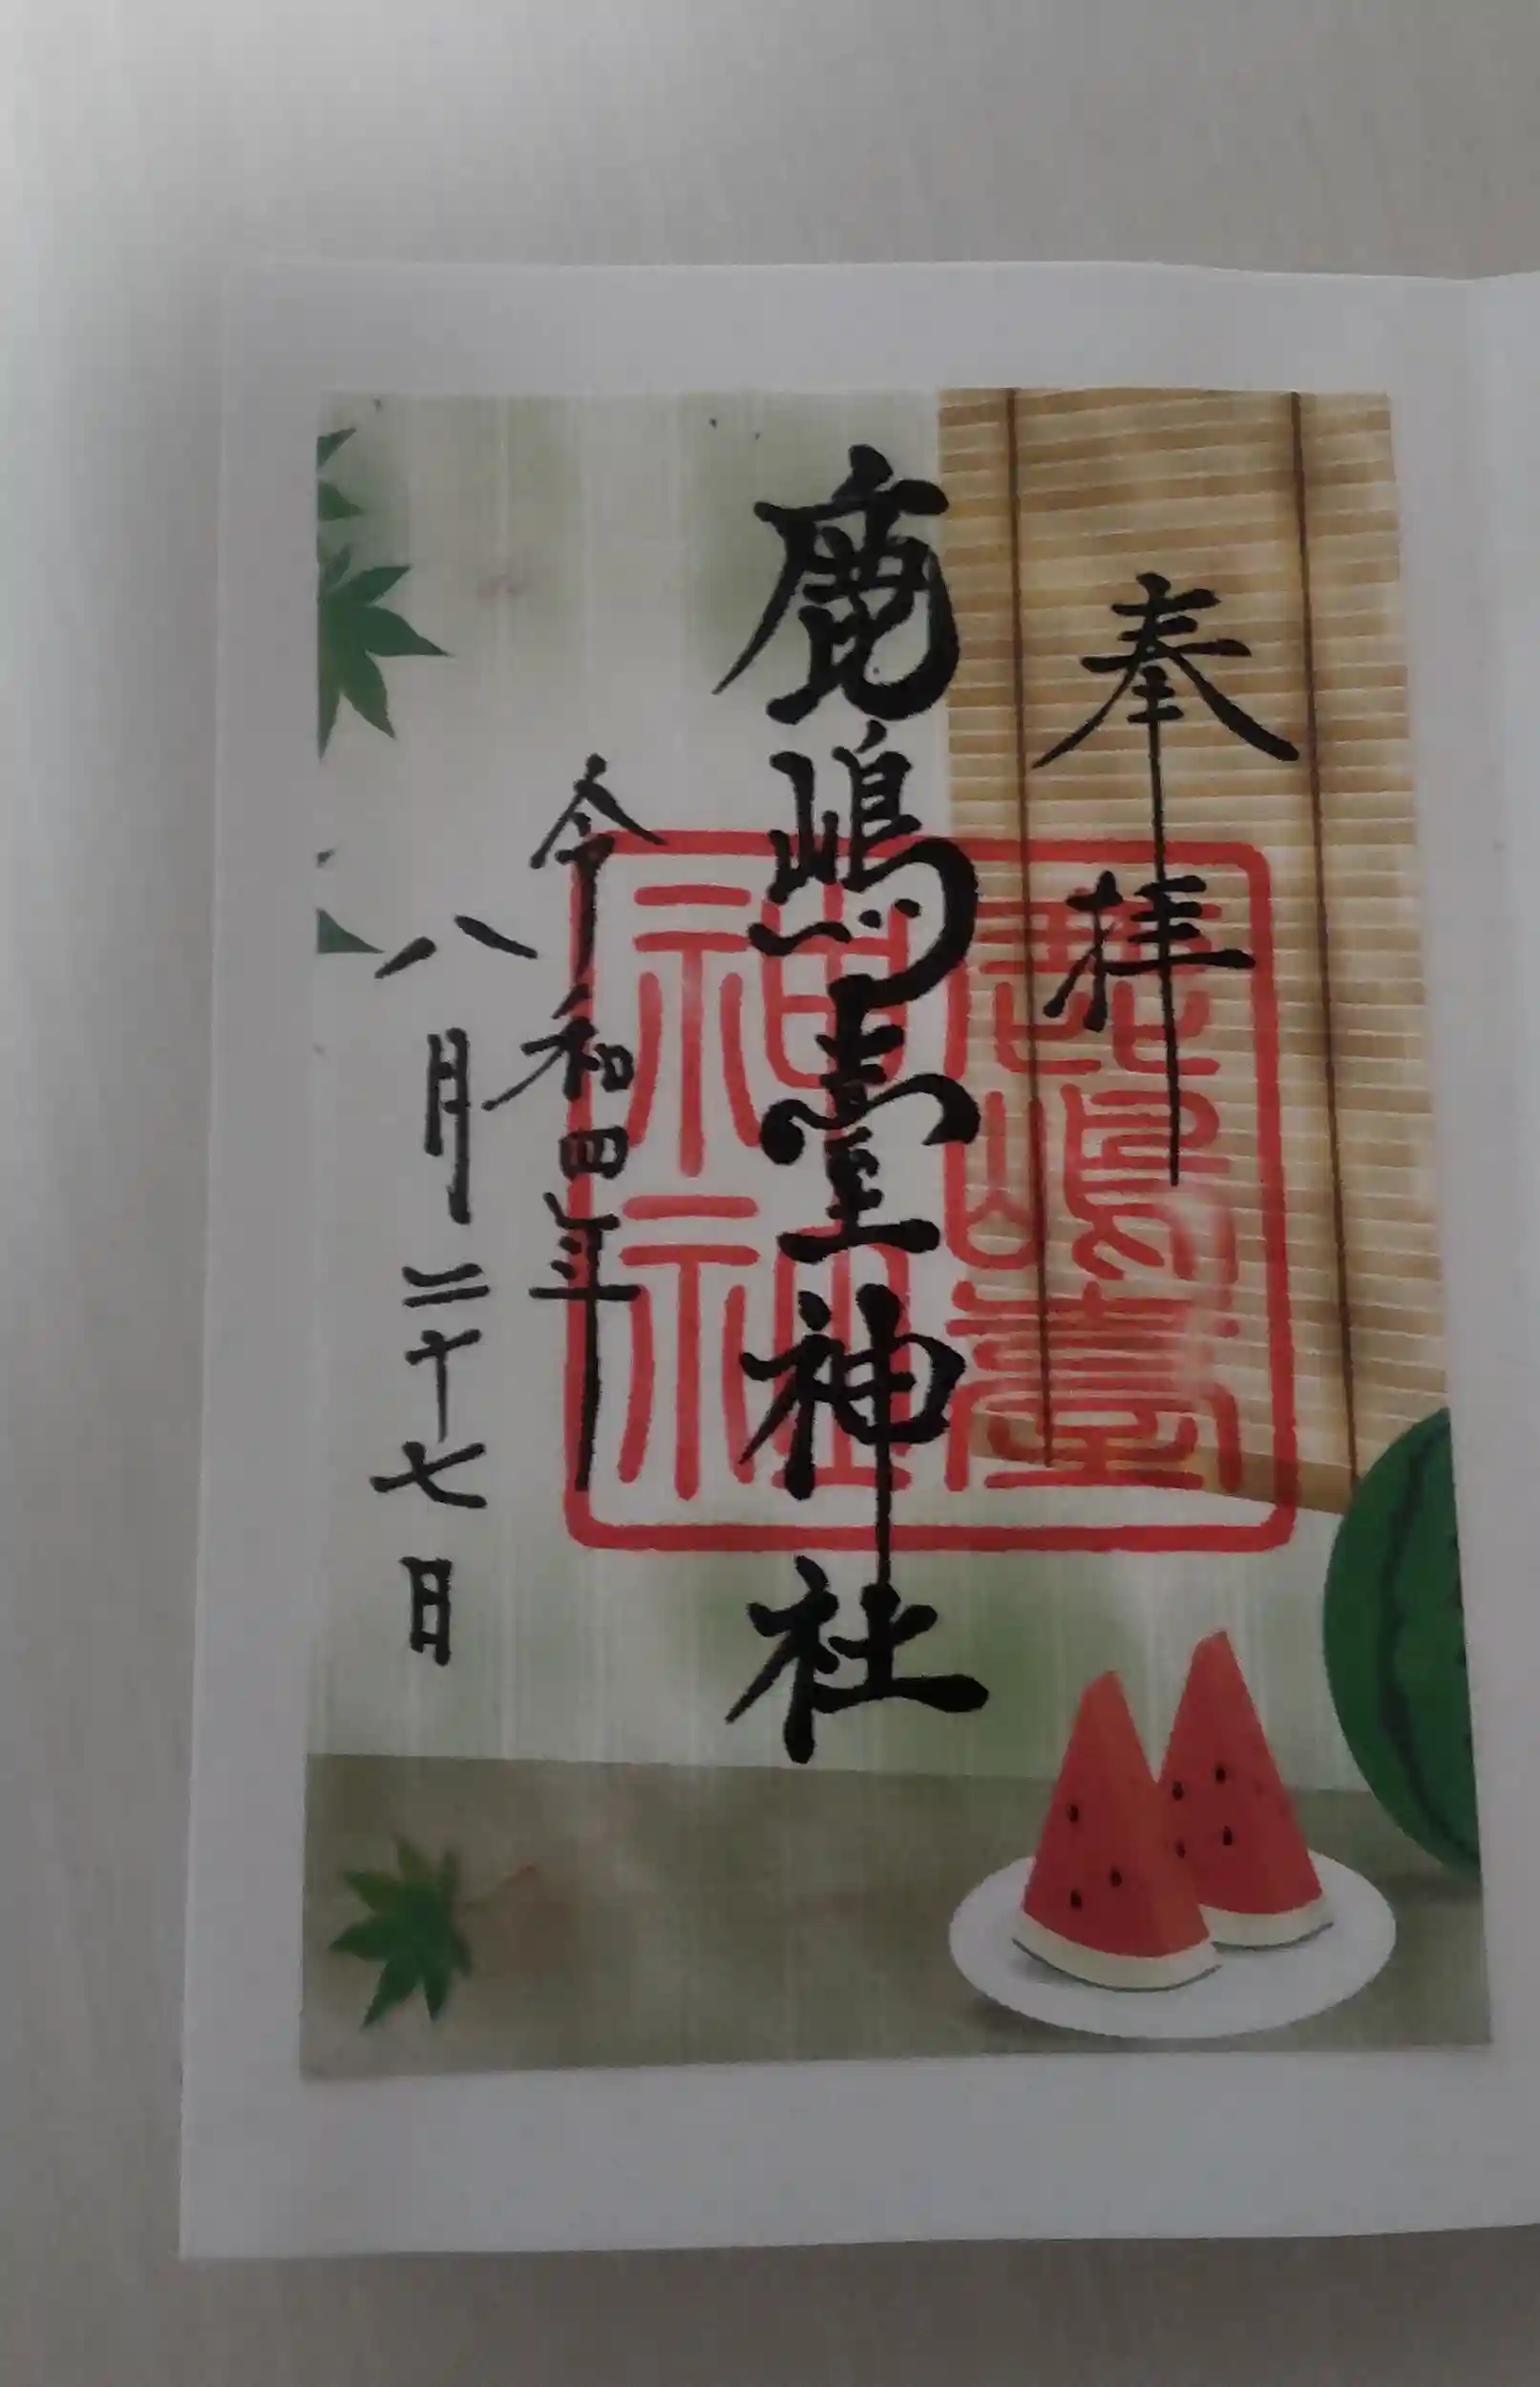 奉拝
鹿嶋臺神社
鹿嶋臺
神社
令和四年
八月二十七日